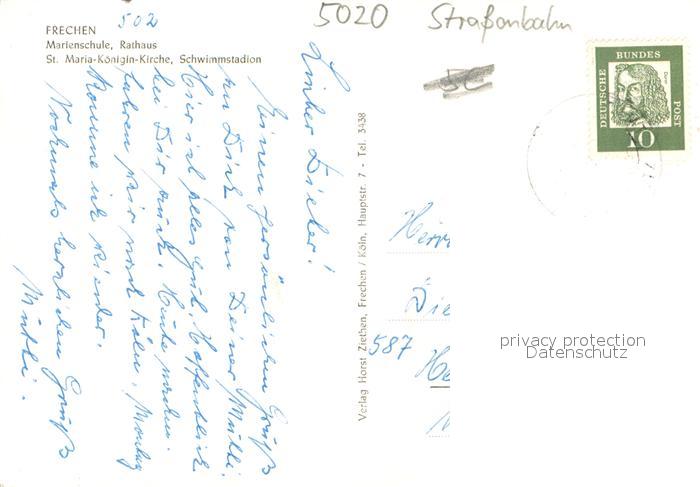 502
5020 Straßenbahn
FRECHEN
Marienschule, Rathaus
St. Maria-Königin-Kirche, Schwimmstadion
Lieber Dieter!
Einen persönlichen Gruß
an Dich von Deiner Mutti.
Hier ist alles gut. Hoffentlich
bei Dir auch. Heute
fahren wir nach Köln. Montag
komme ich wieder.
Nochmals herzlichen Gruß
Mutti.
Verlag Horst Ziethen, Frechen / Köln, Hauptstr. 7 - Tel. 3438
DEUTSCHE
BUNDES
POST
Dürer
10
Herr
Die
587 He
privacy protection
Datenschutz